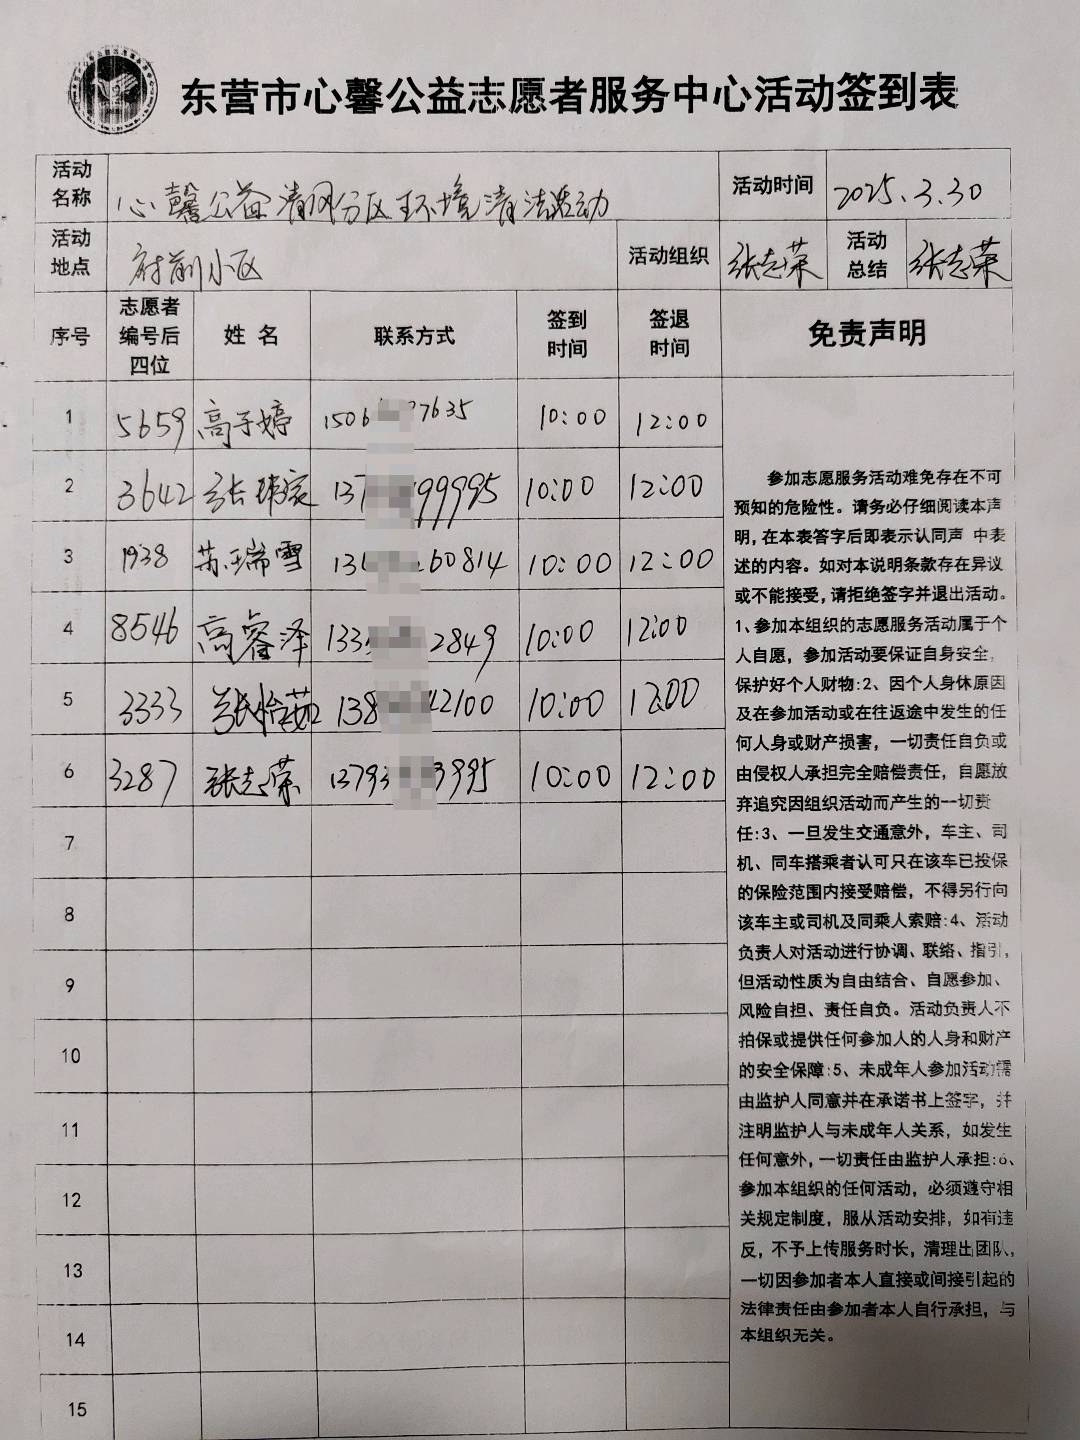 东营市心馨公益志愿者服务中心活动签到表
活动名称 心馨公益清风分区环境清洁活动 活动时间 2025.3.30
活动地点 府前小区 活动组织 张志荣 活动总结 张志荣
序号 志愿者编号后四位 姓名 联系方式 签到时间 签退时间 免责声明
1 5659 高子婷 1506 7635 10:00 12:00
2 3642 张 137 99995 10:00 12:00
3 1938 苏瑞雪 13 60814 10:00 12:00
4 8546 高睿泽 133 2849 10:00 12:00
5 3333 张怡茹 138 42100 10:00 12:00
6 3287 张志荣 13793 3995 10:00 12:00
7
8
9
10
11
12
13
14
15
参加志愿服务活动难免存在不可
预知的危险性。请务必仔细阅读本声
明,在本表答字后即表示认同声 中表
述的内容。如对本说明条款存在异议
或不能接受,请拒绝签字并退出活动。
1、参加本组织的志愿服务活动属于个
人自愿，参加活动要保证自身安全,
保护好个人财物:2、因个人身休原因
及在参加活动或在往返途中发生的任
何人身或财产损害，一切责任自负或
由侵权人承担完全赔偿责任，自愿放
弃追究因组织活动而产生的一切责
任:3、一旦发生交通意外，车主、司
机、同车搭乘者认可只在该车已投保
的保险范围内接受赔偿，不得另行向
该车主或司机及同乘人索赔:4、活动
负责人对活动进行协调、联络、指引,
但活动性质为自由结合、自愿参加、
风险自担、责任自负。活动负责人不
拍保或提供任何参加人的人身和财产
的安全保障:5、未成年人参加活动需
由监护人同意并在承诺书上签字，并
注明监护人与未成年人关系，如发生
任何意外,一切责任由监护人承担:6、
参加本组织的任何活动，必须遵守相
关规定制度，服从活动安排，如有违
反，不予上传服务时长，清理出团队,
一切因参加者本人直接或间接引起的
法律责任由参加者本人自行承担，与
本组织无关。